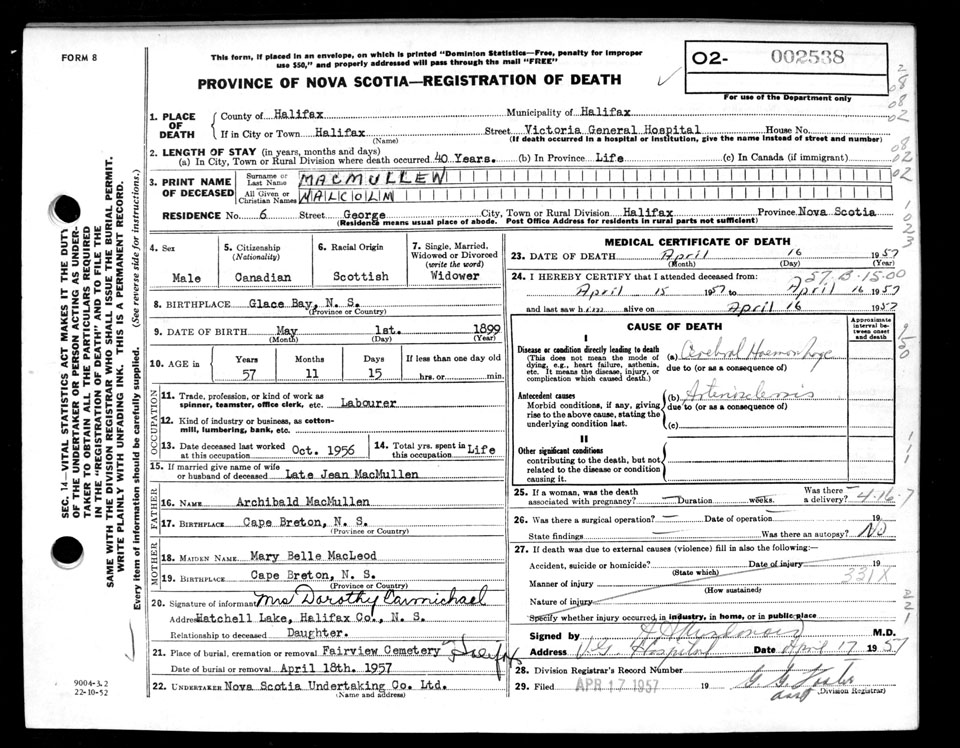 FORM 8
This form, if placed in an envelope, on which is printed "Dominion Statistics—Free, penalty for improper
use $50," and properly addressed will pass through the mail "FREE"
PROVINCE OF NOVA SCOTIA—REGISTRATION OF DEATH
O2- 002538
For use of the Department only
1. PLACE OF DEATH
County of Halifax Municipality of Halifax
If in City or Town Halifax Street Victoria General Hospital House No.
(Name) (If death occurred in a hospital or institution, give the name instead of street and number)
2. LENGTH OF STAY (in years, months and days)
(a) In City, Town or Rural Division where death occurred 40 Years. (b) In Province Life (c) In Canada (if immigrant)
3. PRINT NAME OF DECEASED
Surname or Last Name MACMULLEN
All Given or Christian Names MALCOLM
RESIDENCE No. 6 Street George City, Town or Rural Division Halifax Province Nova Scotia
(Residence means usual place of abode. Post Office Address for residents in rural parts not sufficient)
4. Sex
Male
5. Citizenship
(Nationality)
Canadian
6. Racial Origin
Scottish
7. Single, Married, Widowed or Divorced
(write the word)
Widower
8. BIRTHPLACE Glace Bay, N. S.
(Province or Country)
9. DATE OF BIRTH May 1st. 1899
(Month) (Day) (Year)
10. AGE in Years Months Days If less than one day old
57 11 15 hrs. or min.
OCCUPATION
11. Trade, profession, or kind of work as
spinner, teamster, office clerk, etc. Labourer
12. Kind of industry or business, as cotton-
mill, lumbering, bank, etc.
13. Date deceased last worked
at this occupation Oct. 1956
14. Total yrs. spent in
this occupation Life
15. If married give name of wife
or husband of deceased Late Jean MacMullen
FATHER
16. NAME Archibald MacMullen
17. BIRTHPLACE Cape Breton, N. S.
(Province or Country)
MOTHER
18. MAIDEN NAME. Mary Belle MacLeod
19. BIRTHPLACE Cape Breton, N. S.
(Province or Country)
20. Signature of informant Mrs Dorothy Carmichael
Address Hatchell Lake, Halifax Co., N. S.
Relationship to deceased Daughter.
21. Place of burial, cremation or removal Fairview Cemetery Halifax
Date of burial or removal April 18th. 1957
22. UNDERTAKER Nova Scotia Undertaking Co. Ltd.
(Name and address)
MEDICAL CERTIFICATE OF DEATH
23. DATE OF DEATH April 16 1957
(Month) (Day) (Year)
24. I HEREBY CERTIFY that I attended deceased from:
257.B-15.00
April 15 1957 to April 16 1957
and last saw him alive on April 16 1957
CAUSE OF DEATH
Approximate interval between onset and death
I
Disease or condition directly leading to death
(This does not mean the mode of
dying, e.g., heart failure, asthenia,
etc. It means the disease, injury, or
complication which caused death.)
(a) Cerebral Haemorrhage
due to (or as a consequence of)
Antecedent causes
Morbid conditions, if any, giving
rise to the above cause, stating the
underlying condition last.
(b) Arteriosclerosis
due to (or as a consequence of)
(c)
II
Other significant conditions
contributing to the death, but not
related to the disease or condition
causing it.
25. If a woman, was the death
associated with pregnancy? Duration weeks. Was there
a delivery? 4-16-7
26. Was there a surgical operation? Date of operation 19
State findings Was there an autopsy? No
27. If death was due to external causes (violence) fill in also the following:
Accident, suicide or homicide? Date of injury 19
(State which)
331X
Manner of injury
(How sustained)
Nature of injury
Specify whether injury occurred in industry, in home, or in public place
Signed by M.D.
Address V.G. Hospital Date April 17 1957
28. Division Registrar's Record Number
29. Filed APR 17 1957 19 G. G. Foster
asst (Division Registrar)
SEC. 14—VITAL STATISTICS ACT MAKES IT THE DUTY
OF THE UNDERTAKER OR PERSON ACTING AS UNDER-
TAKER TO OBTAIN ALL THE PARTICULARS REQUIRED
IN THE "REGISTRATION OF DEATH" AND TO FILE THE
SAME WITH THE DIVISION REGISTRAR WHO SHALL ISSUE THE BURIAL PERMIT.
WRITE PLAINLY WITH UNFADING INK. THIS IS A PERMANENT RECORD.
Every item of information should be carefully supplied. (See reverse side for instructions.)
9004-3.2
22-10-52